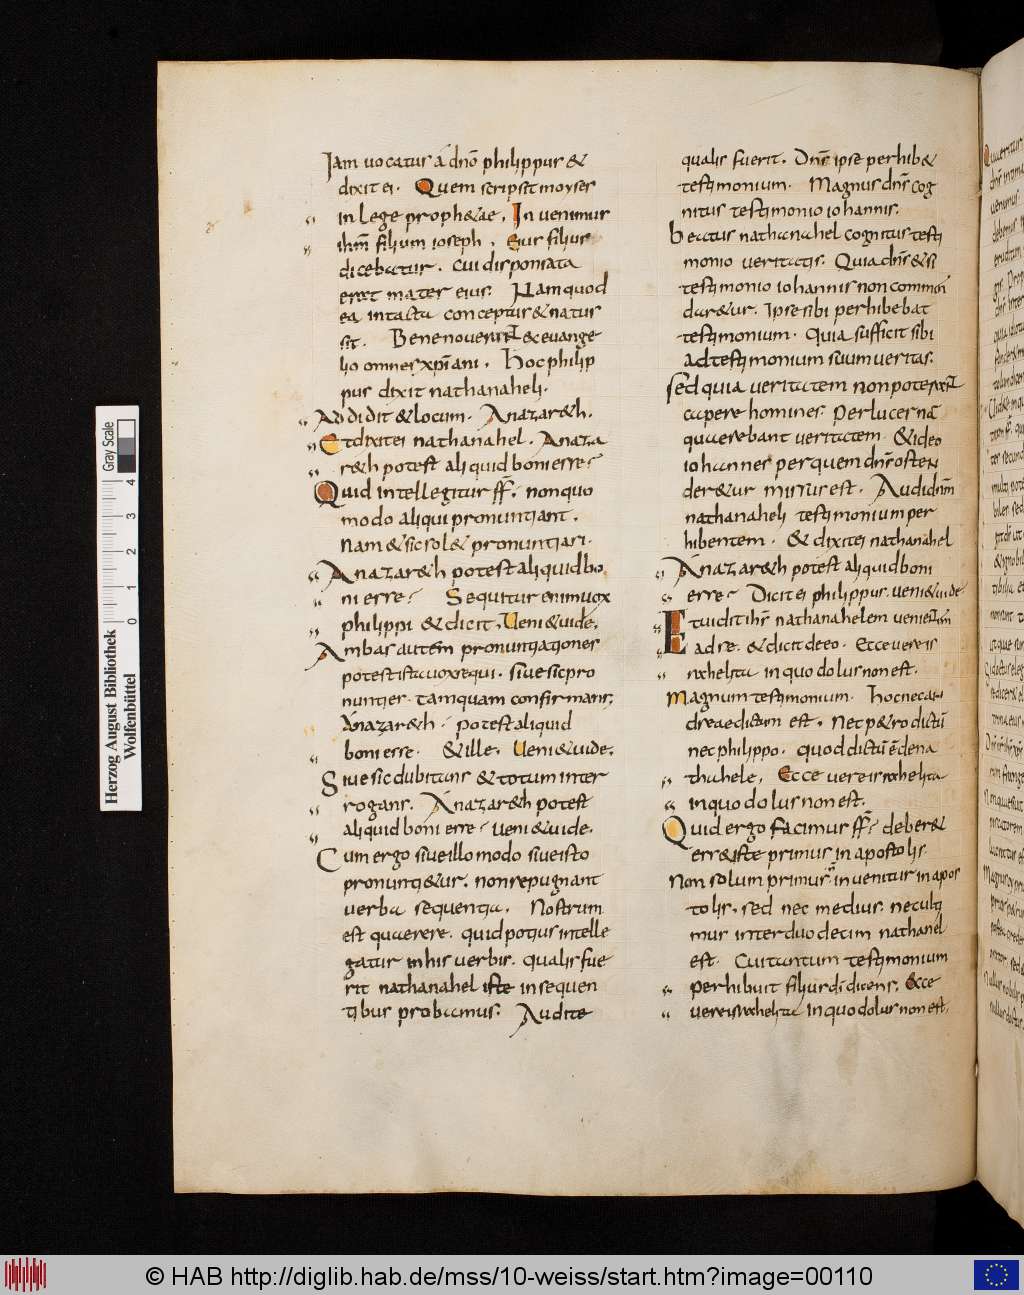 Iam uocatus a dño philippus &
dixit ei. Quem scripsit moyses
in lege proph&ae, Inuenimus
ihm filium ioseph, Eius filius
dicebatur. cui disponsata
erat mater eius. Nam quod
ea intacta conceptus & natus
sit. Bene nouerunt & euange
lio omnes xpiani. Hoc philip
pus dixit nathanaheli.
Addidit & locum. Anazar&h.
Et dixit ei nathanahel. Anaza
r&h potest aliquid boni esse?
Quid intellegitur ff. non quo
modo aliqui pronuntiant.
Nam & sic sol& pronuntiari.
Anazar&h potest aliquid bo
ni esse? Sequitur enim uox
philippi & dicit. Ueni & uide.
Ambas autem pronuntiationes
potest ista uox sequi. siue sic pro
nunties. tamquam confirmans.
Anazar&h. potest aliquid
boni esse. & ille. Ueni & uide.
Siue sic dubitans & totum inter
rogans. Anazar&h potest
aliquid boni esse? ueni & uide.
Cum ergo siue illo modo siue isto
pronunti&ur. non repugnant
uerba sequentia. Nostrum
est quaerere. quid potius intelle
gatur in his uerbis. qualis fue
rit nathanahel iste in sequen
tibus probamus. Audite
qualis fuerit. Dns ipse perhib&
testimonium. Magnus dns cog
nitus testimonio iohannis.
Beatus nathanahel cognitus testi
monio ueritatis. Quia dns & si
testimonio iohannis non commen
dar&ur. Ipse sibi perhibebat
testimonium. Quia sufficit sibi
ad testimonium suum ueritas.
Sed quia ueritatem non poterant
capere homines. Per lucerna
quaerebant ueritatem. & ideo
iohannes per quem dns osten
der&ur missus est. Audi dnm
nathanaheli testimonium per
hibentem. & dixit ei nathanahel
Anazar&h potest aliquid boni
esse? Dicit ei philippus. ueni & uide
Et uidit ihs nathanahelem uenientem
ad se. & dicit de eo. Ecce uere is
rahelita in quo dolus non est.
Magnum testimonium. Hoc nec an
dreae dictum est. Nec p&ro dictu
nec philippo. quod dictu e de na
thahele, Ecce uere israhelita
in quo dolus non est.
Quid ergo facimus ff? deber&
esse iste primus in apostolis.
Non solum primus inuenitur in apos
tolis. sed nec medius. nec ulti
mus inter duodecim nathanel
est. Cui tantum testimonium
perhibuit filius di dicens. Ecce
uere israhelita in quo dolus non est.
Herzog August Bibliothek
Wolfenbüttel
0 1 2 3 4
Gray Scale
© HAB http://diglib.hab.de/mss/10-weiss/start.htm?image=00110